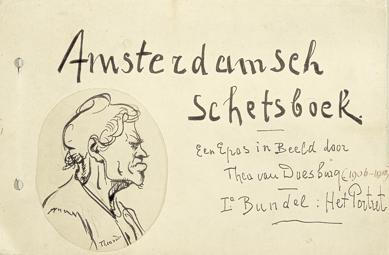 Amsterdamsch
Schetsboek.
Een Epos in Beeld door
Theo van Doesburg (1906-1910)
Ie Bundel: Het Portret